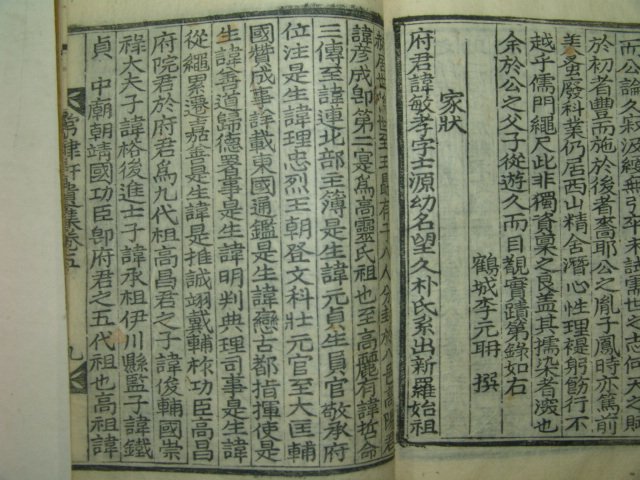 而公論久寂波綏無引卒未試需世之志何天之賦
於初者豊而施於後者嗇耶公之胤子鳳時亦篤前
美蚤廢科業仍居西山精舍潛心性理褆躬飭行不
越乎儒門繩尺此非獨資稟之良盖其擩染者深也
余於公之父子從遊久而目覩實蹟第錄如右
鶴城李元 撰
家狀
府君諱敏孝字士源幼名望久朴氏系出新羅始祖
諱彦成卽第二寔爲高靈氏祖也至高麗有諱哲命
三傳至諱連北部主簿是生諱元貞生員官敬承府
位注是生諱理忠烈王朝登文科壯元官至大匡輔
國賛成事詳載東國通鑑是生諱戀古都指揮使是
生諱善道歸德署事是生諱明判典理司事是生諱
從繩累遷嘉善是生諱是推誠翊戴輔祚功臣高昌
府院君於府君爲九代祖高昌君之子諱俊輔國崇
祿大夫子諱格後進士子諱承祖伊川縣監子諱鐵
貞 中廟朝靖國功臣卽府君之五代祖也高祖諱
軒遺集卷五 九